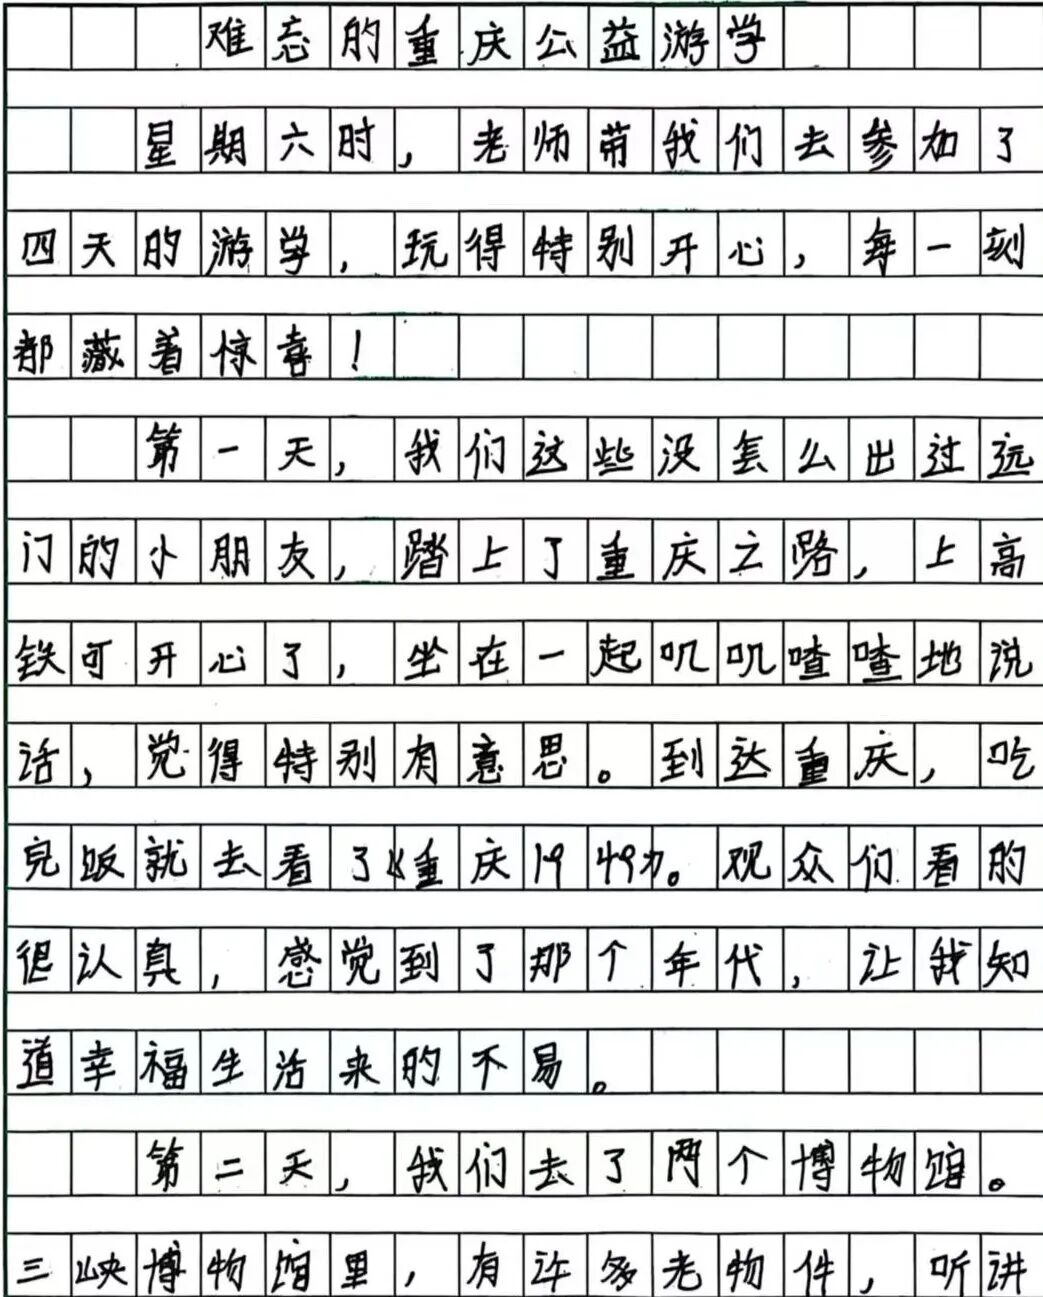 难忘的重庆公益游学
星期六时，老师带我们去参加了
四天的游学，玩得特别开心，每一刻
都藏着惊喜！
第一天，我们这些没怎么出过远
门的小朋友，踏上了重庆之路，上高
铁可开心了，坐在一起叽叽喳喳地说
话，觉得特别有意思。到达重庆，吃
完饭就去看了《重庆1949》。观众们看的
很认真，感觉到了那个年代，让我知
道幸福生活来的不易。
第二天，我们去了两个博物馆。
三峡博物馆里，有许多老物件，听讲